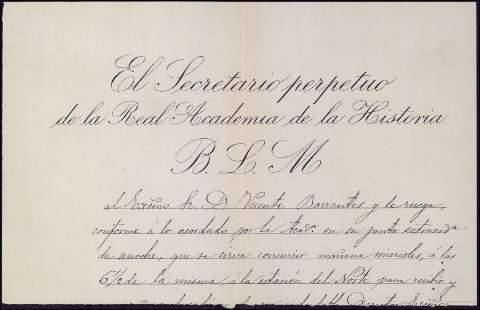 El Secretario perpetuo
de la Real Academia de la Historia
B. L. M
al Excmo Sr. D. Vicente Barrantes y le ruega,
conforme á lo acordado por la Acad.ª en su junta extraord.ª
de anoche, que se sirva concurrir mañana miercoles, á las
6½ de la misma, á la estación del Norte para recibir y